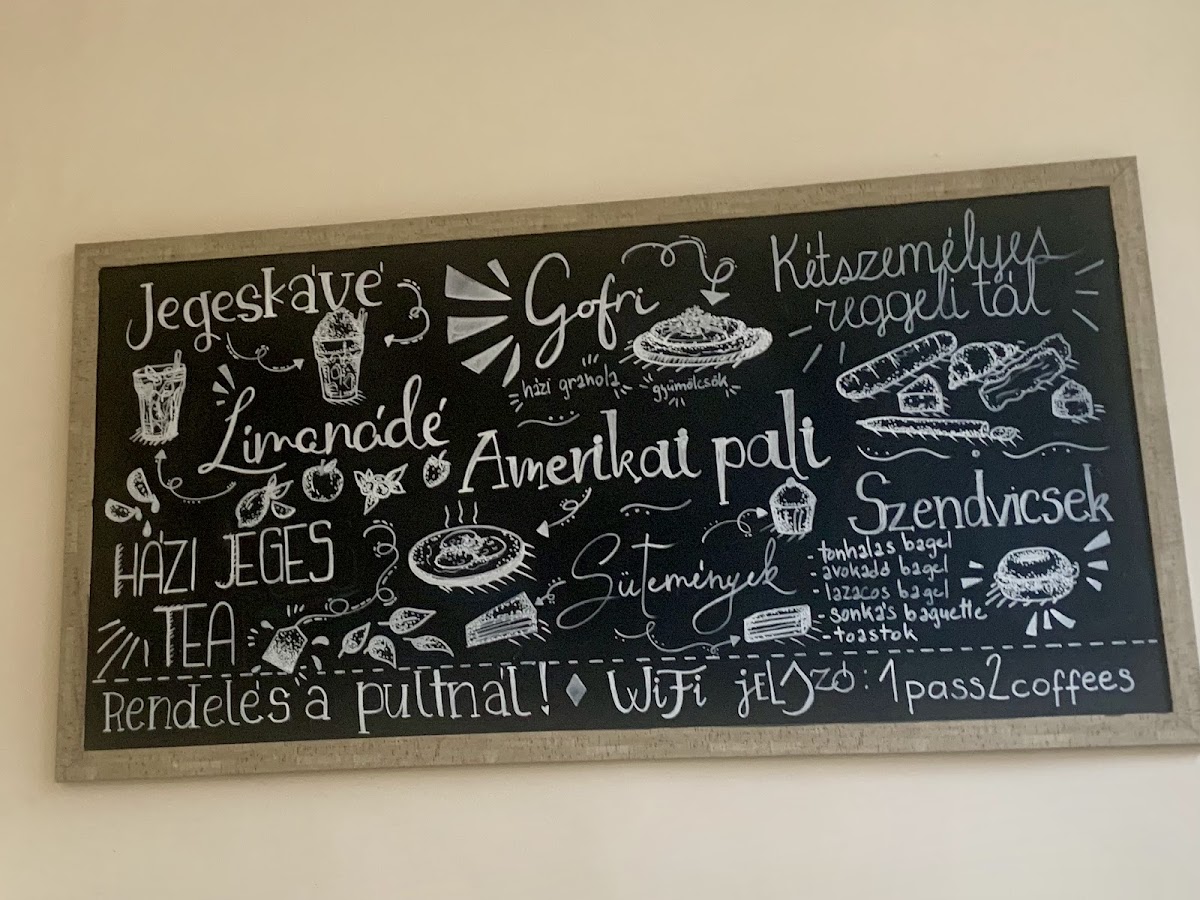 Jegeskávé
Limonádé
HÁZI JEGES
TEA
Gofri
házi granola
gyümölcsök
Amerikai pali
Sütemények
Kétszemélyes
reggeli tál
Szendvicsek
- tonhalas bagel
- avokadó bagel
- lazacos bagel
- sonkás baguette
- toastok
Rendelés a pultnál! ♦ WiFi jELSzó: 1pass2coffees